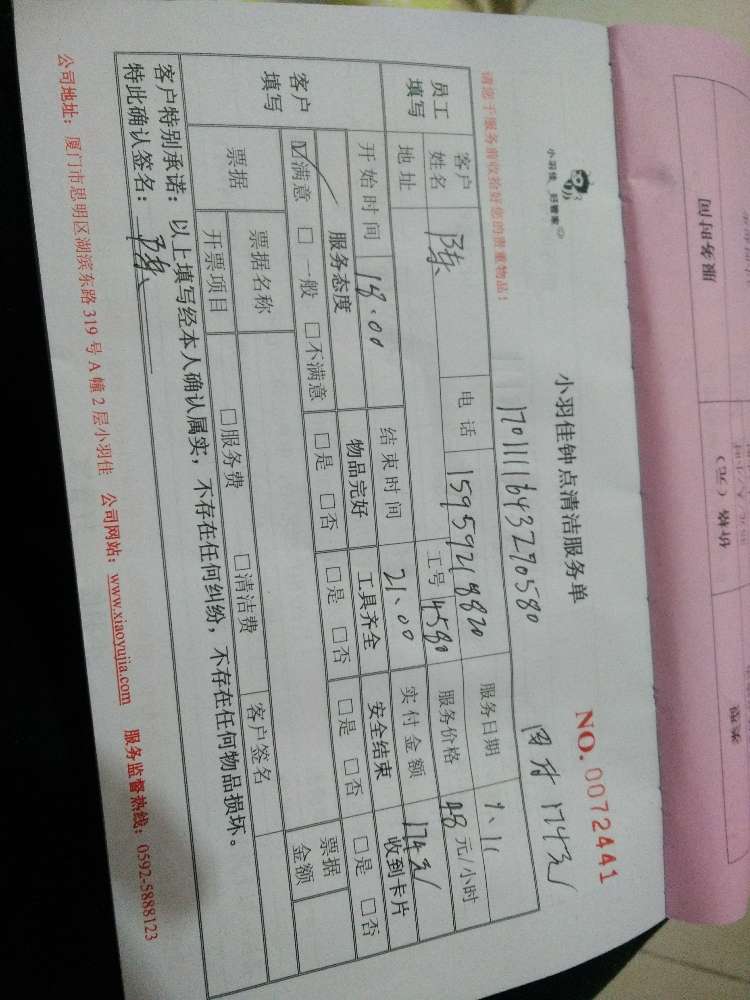 小羽佳 好管家
小羽佳钟点清洁服务单
NO. 0072441
1701111643290580
174元
请您于服务前收拾好您的贵重物品！
员工填写
客户姓名 陈
电话 15959218820
服务日期 1.11
地址
工号 4580
服务价格 48 元/小时
开始时间 18.00
结束时间 21.00
实付金额 174元
客户填写
服务态度 物品完好 工具齐全 安全结束 收到卡片
☑满意 □一般 □不满意 □是 □否 □是 □否 □是 □否 □是 □否
票据
票据名称
客户签名
票据金额
开票项目 □服务费 □清洁费
客户特别承诺：以上填写经本人确认属实，不存在任何纠纷，不存在任何物品损坏。
特此确认签名：陈
公司地址：厦门市思明区湖滨东路 319 号 A 幢 2 层小羽佳 公司网站：www.xiaoyujia.com 服务监督热线：0592-5888123